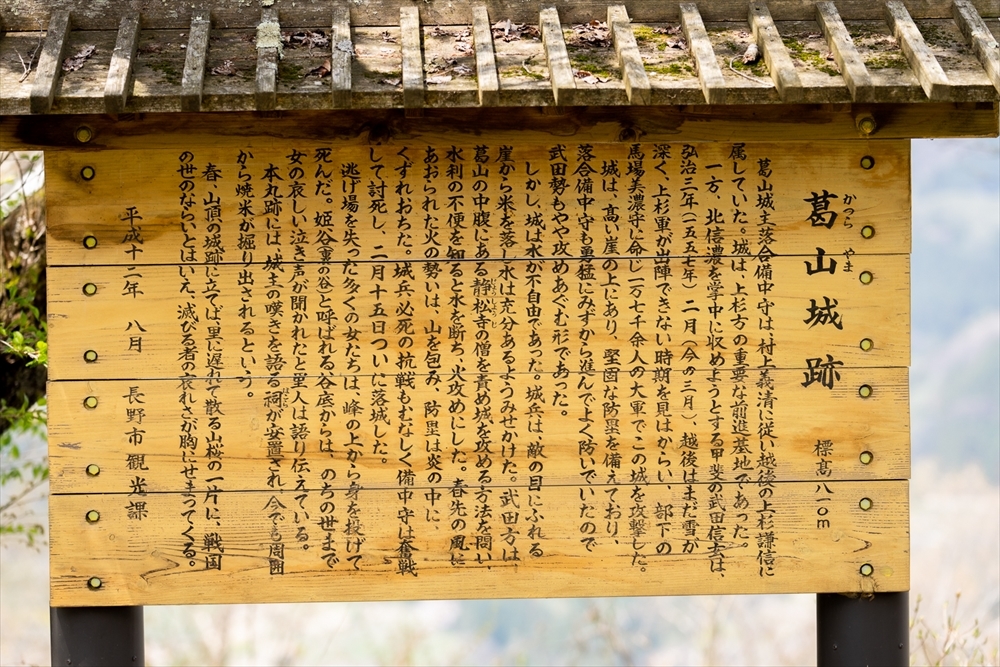 葛山城跡
かつら やま
標高八一〇m
葛山城主落合備中守は、村上義清に従い越後の上杉謙信に
属していた。城は、上杉方の重要な前進基地であった。
一方、北信濃を掌中に収めようとする甲斐の武田信玄は、
弘治三年(一五五七年)二月(今の三月)、越後はまだ雪が
深く、上杉軍が出陣できない時期を見はからい、部下の
馬場美濃守に命じ一万七千余人の大軍でこの城を攻撃した。
城は、高い崖の上にあり、堅固な防塁を備えており、
落合備中守も勇猛にみずから進んで上く防いでいたので
武田勢もやや攻めあぐむ形であった。
しかし、城は水が不自由であった。城兵は、敵の目にふれる
崖から米を落し水は充分あるようみせかけた。武田方は、
葛山の中腹にある静松寺の僧を責め城を攻める方法を問い、
じょうしょうじ
水利の不便を知ると水を断ち、火攻めにした。春先の風に
あおられた火の勢いは、山を包み、防塁は炎の中に
くずれおちた。城兵必死の抗戦もむなしく備中守は奮戦
して討死し、二月十五日ついに落城した。
逃げ場を失った多くの女たちは、峰の上から身を投げて
死んだ。姫谷(裏の谷)と呼ばれる谷底からは、のちの世まで
女の哀しい泣き声が聞かれたと里人は語り伝えている。
本丸跡には、城主の嘆きを語る祠が安置され、今でも周囲
ほこら
から焼米が掘り出されるという。
春、山頂の城跡に立てば、里に遅れて散る山桜の一片に、戦国
の世のならいとはいえ、滅びる者の哀れさが胸にせまってくる。
平成十二年 八月 長野市観光課